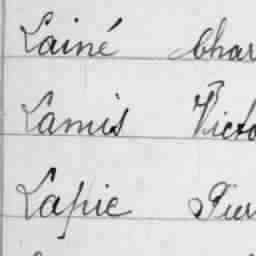 Lainé Char
Lamis Victo
Lapie Pier